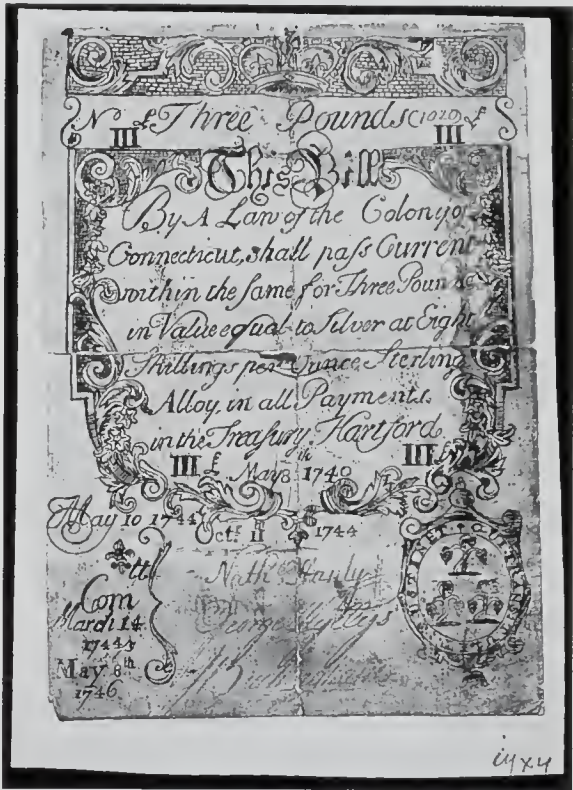 No £ Three Pounds (1020) £
III III
This Bill
By A Law of the Colony of
Connecticut, shall pass Current
within the same for Three Pounds
in Value equal to Silver at Eight
Shillings per Ounce, Sterling
Alloy, in all Payments
in the Treasury, Hartford
III £ May 8th 1740 III
May 10 1744
Octr. 11 1744
tt
Com
March 14
1744
May 8th
1746
Nath
George Wyllys
SUSTINET QUI TRANS